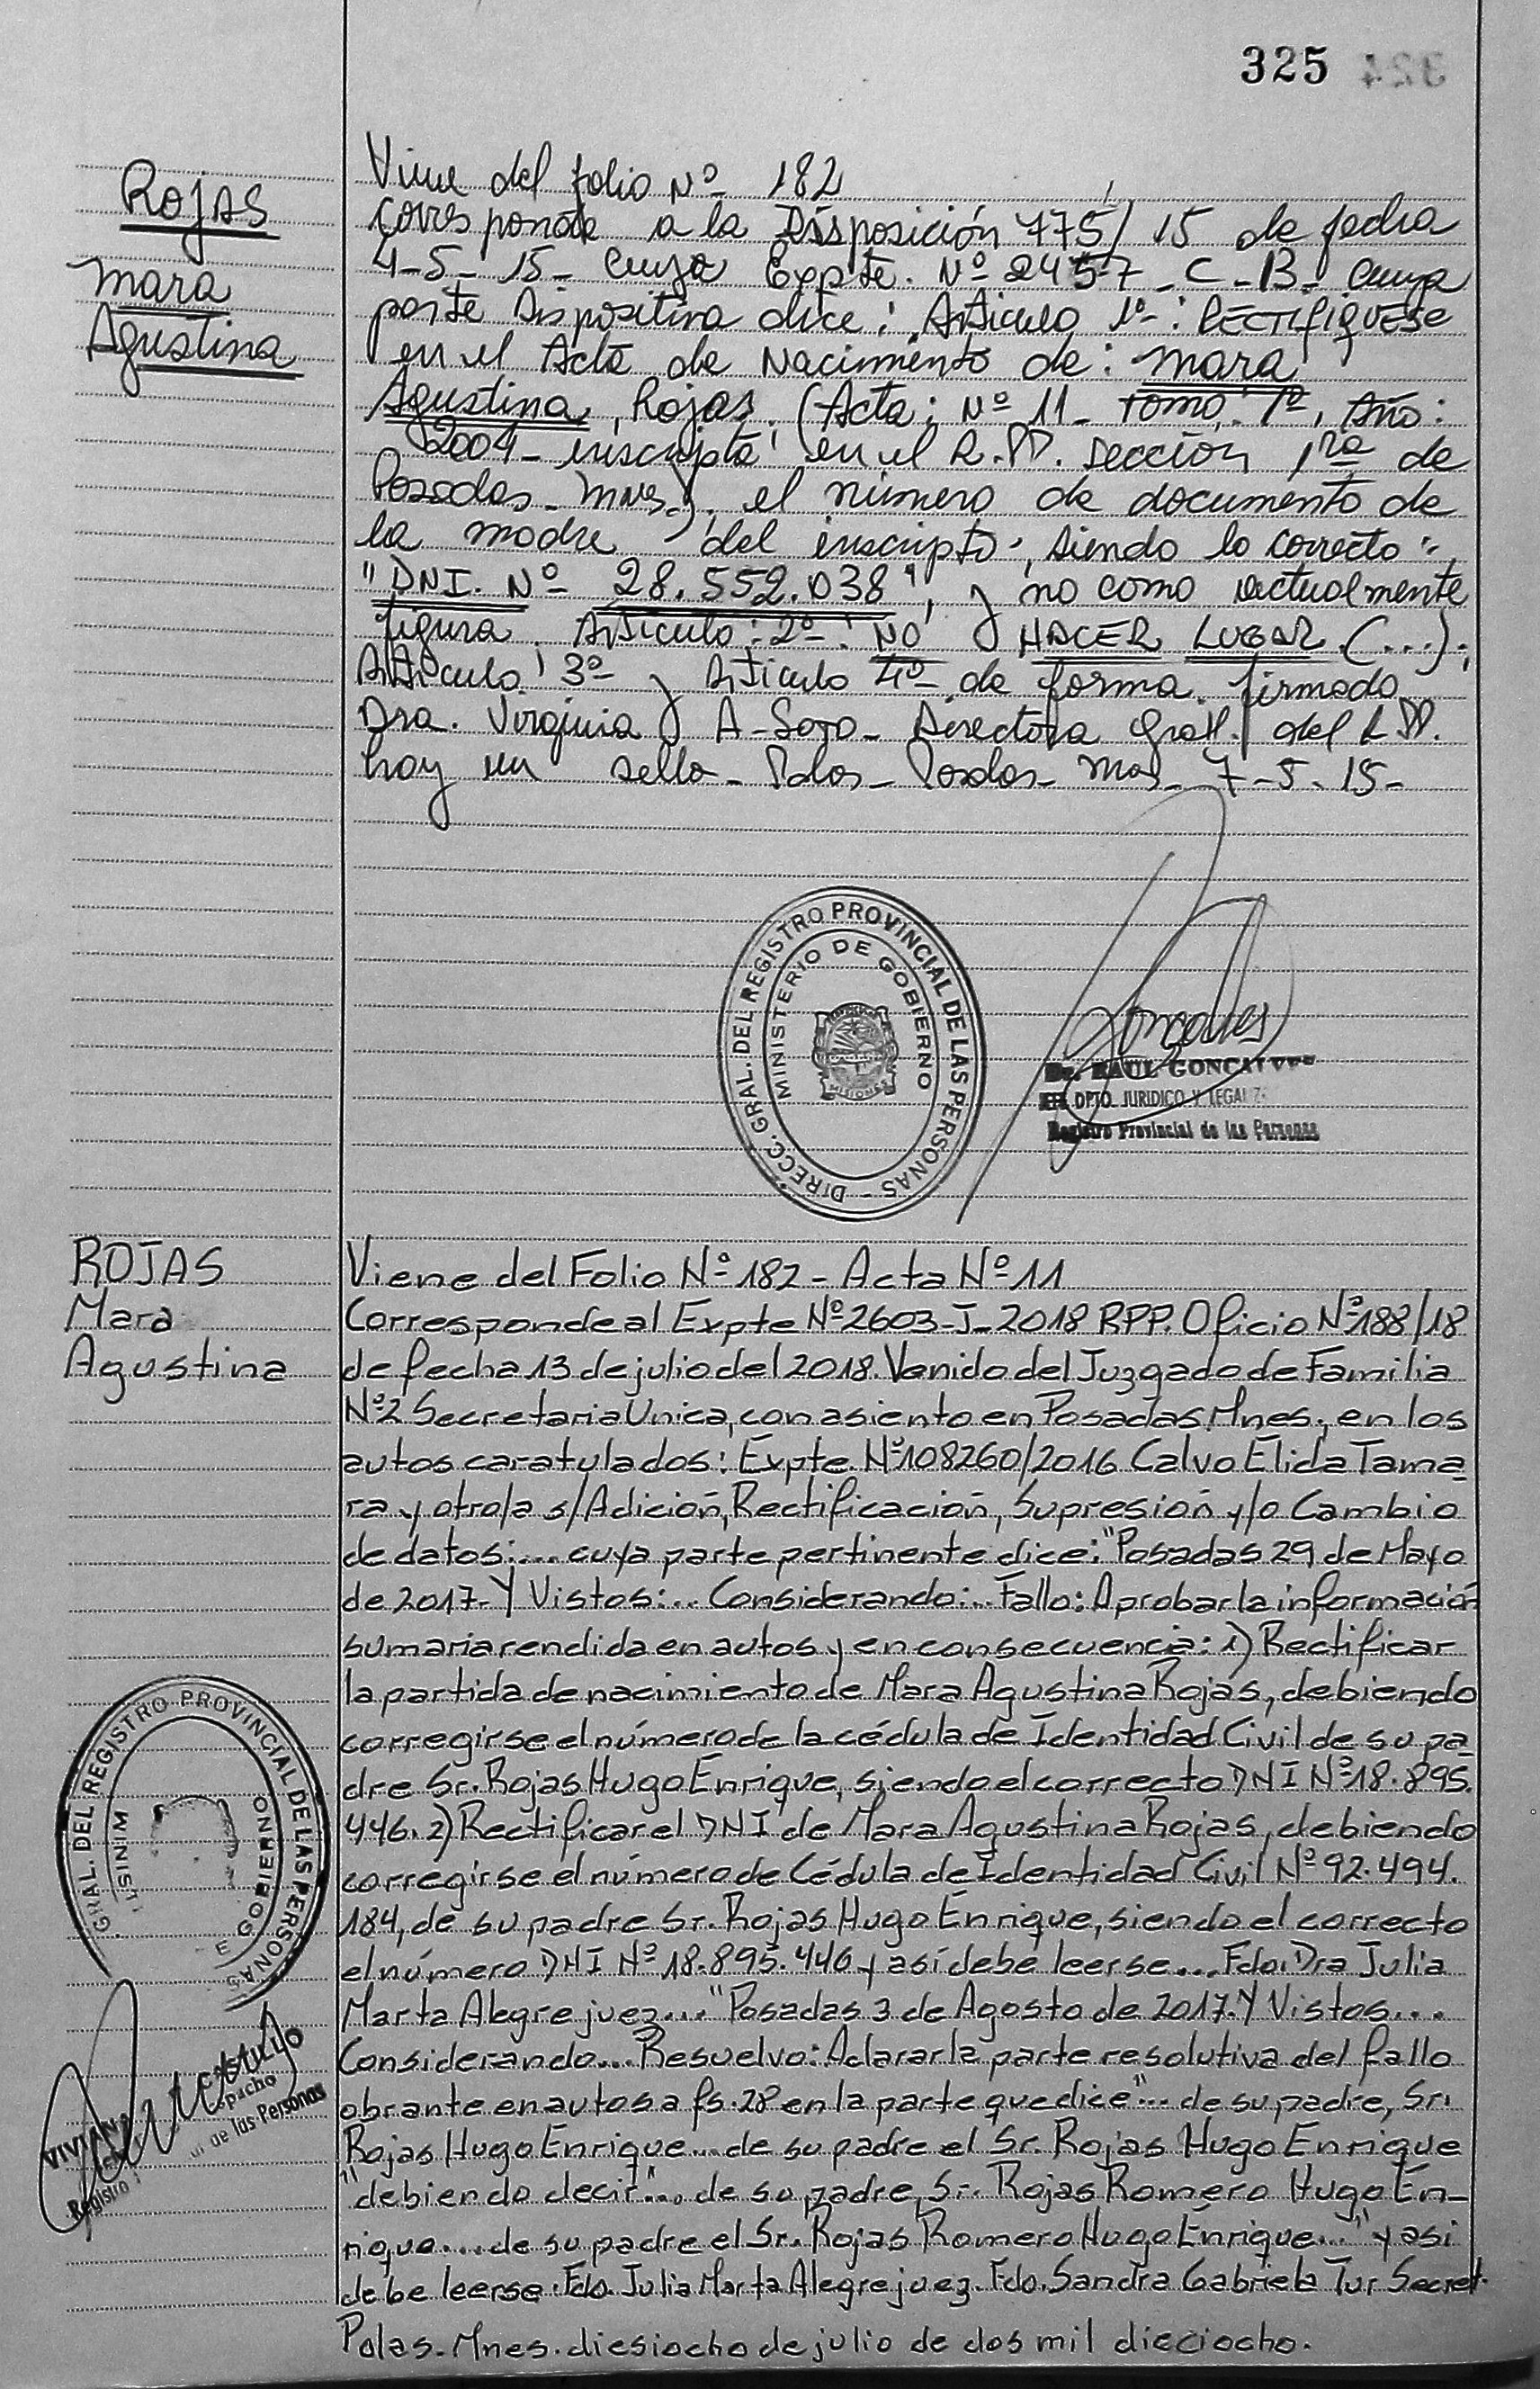 325
324
Rojas
Mara
Agustina
Viene del folio Nº 182
Corresponde a la Disposición 775/15 de fecha
4-5-15- cuyo Expte. Nº 2457-C-B- cuya
parte dispositiva dice: Articulo 1º-: RECTIFIQUESE
en el Acta de Nacimiento de: Mara
Agustina, Rojas. (Acta: Nº 11- Tomo: 1º, Año:
2004- inscripta en el R.P.P. sección 1ra de
Posadas- Mnes.), el número de documento de
la madre del inscripto, siendo lo correcto:
"DNI. Nº 28.552.038", y no como actualmente
figura. Articulo: 2º-: NO HACER LUGAR (...);
Articulo 3º y Articulo 4º- de forma. firmado
Dra. Virginia A-Soto- Directora Gral. del R.P.P.
hay un sello- Pdas- Mns- 7-5-15-
DIRECC. GRAL. DEL REGISTRO PROVINCIAL DE LAS PERSONAS -
MINISTERIO DE GOBIERNO
MISIONES
Dr. RAUL GONCALVES
DPTO. JURIDICO Y LEGAL
Registro Provincial de las Personas
ROJAS
Mara
Agustina
Viene del Folio Nº 182 - Acta Nº 11
Corresponde al Expte Nº 2603-J-2018 RPP. Oficio Nº 188/18
de fecha 13 de julio del 2018. Venido del Juzgado de Familia
Nº 2 Secretaria Unica, con asiento en Posadas Mnes, en los
autos caratulados: Expte. Nº 108260/2016 Calvo Elida Tama-
ra y otro/a s/Adición, Rectificación, Supresión y/o Cambio
de datos:... cuya parte pertinente dice: "Posadas 29 de Mayo
de 2017- Y Vistos:... Considerando:... Fallo: Aprobar la información
sumaria rendida en autos y en consecuencia: 1) Rectificar
la partida de nacimiento de Mara Agustina Rojas, debiendo
corregirse el número de la cédula de Identidad Civil de su pa-
dre Sr. Rojas Hugo Enrique, siendo el correcto DNI Nº 18.895.
446. 2) Rectificar el DNI de Mara Agustina Rojas, debiendo
corregirse el número de Cédula de Identidad Civil Nº 92.494.
184, de su padre Sr. Rojas Hugo Enrique, siendo el correcto
el número DNI Nº 18.895.446 y así debe leerse... Fdo. Dra Julia
Marta Alegre juez..." Posadas 3 de Agosto de 2017. Y Vistos...
Considerando... Resuelvo: Aclarar la parte resolutiva del fallo
obrante en autos a fs. 28 en la parte que dice "... de su padre, Sr.
Rojas Hugo Enrique... de su padre el Sr. Rojas Hugo Enrique
"debiendo decir"... de su padre, Sr. Rojas Romero Hugo En-
rique... de su padre el Sr. Rojas Romero Hugo Enrique..." y así
debe leerse. Fdo. Julia Marta Alegre juez. Fdo. Sandra Gabriela Tur Secret.
Pdas. Mnes. diesiocho de julio de dos mil dieciocho.
GRAL. DEL REGISTRO PROVINCIAL DE LAS PERSONAS
MINIS E GOBIERNO
VIVIAN
Registro de las Personas